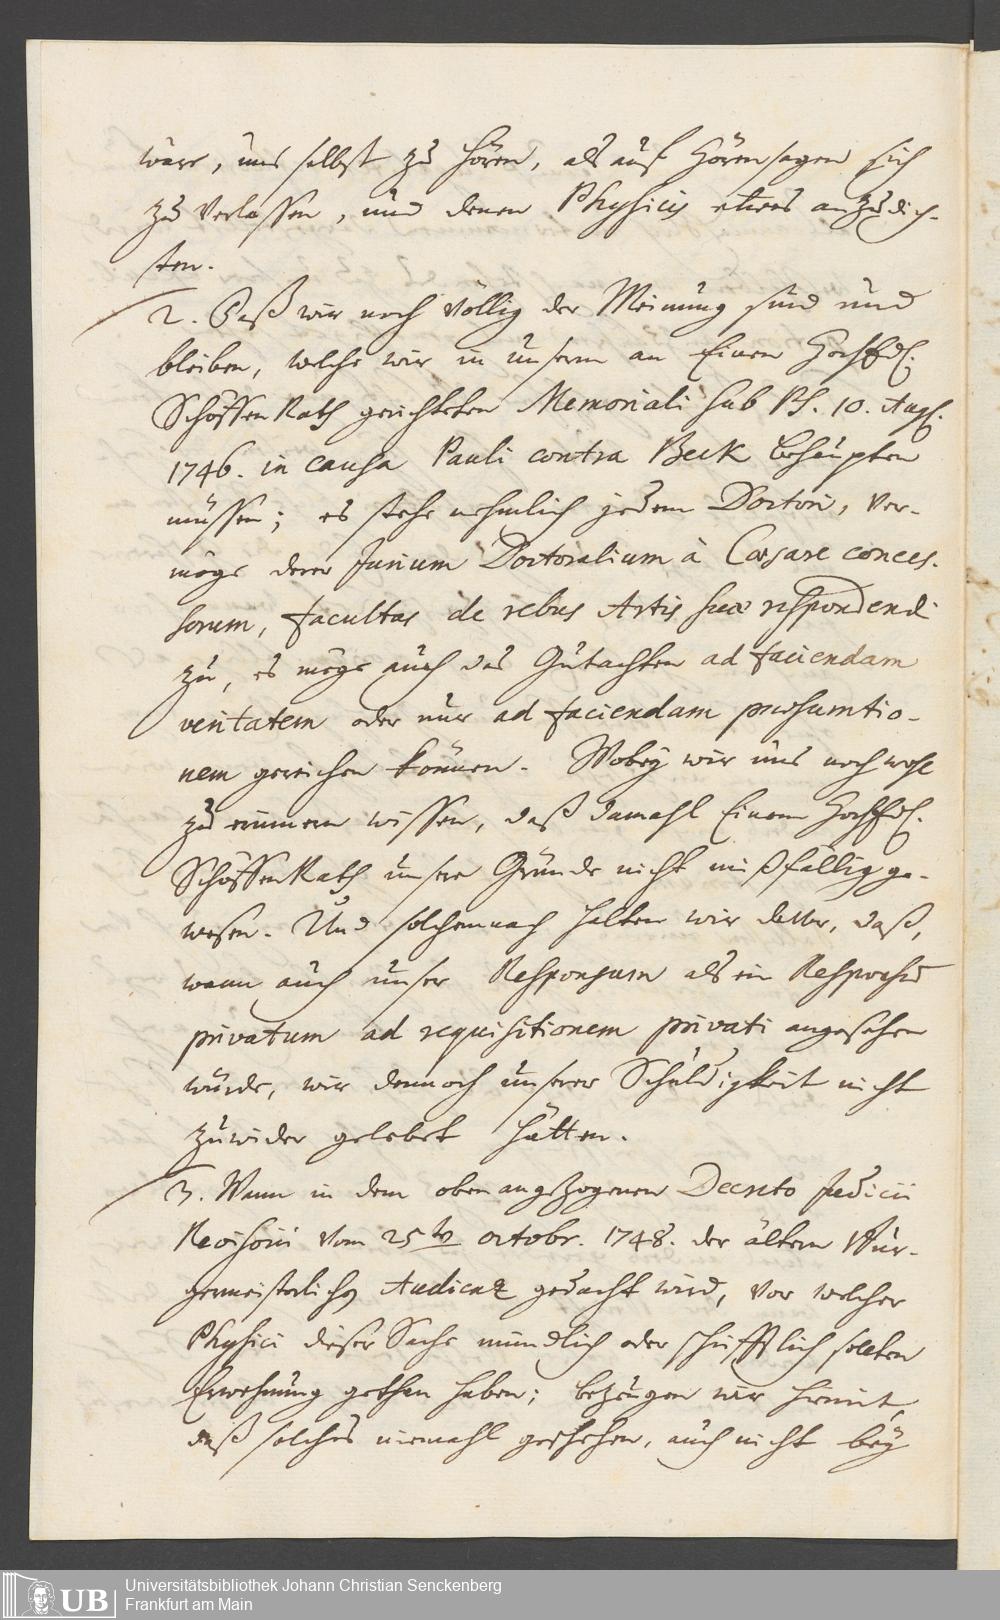 wäre, uns selbst zu hören, als auf Hörensagen sich
zu verlassen, und denen Physicis etwas anzudich-
ten.
2. Daß wir noch völlig der Meinung sind und
bleiben, welche wir in unserm an Einen Hoch
Schöffen Rath gerichteten Memoriali sub Ps. 10. Aug.
1746. in causa Pauli contra Beck behaupten
müssen; es stehe nehmlich jedem Doctori, ver-
möge derer Jurium Doctoralium à Caesare conces-
sorum, facultas de rebus Artis suae respondendi
zu, es möge auch das Gutachten ad faciendam
veritatem oder nur ad faciendam praesumtio-
nem gereichen können. Wobey wir uns noch wohl
zu erinnern wissen, daß damahl Einem Hoch
Schöffen Rath unsere Gründe nicht mißfällig ge-
wesen. Und solchemnach halten wir davor, daß,
wann auch unser Responsum als ein Responsum
privatum ad requisitionem privati angesehen
würde, wir dennoch unserer Schuldigkeit nicht
zuwider gelebet hätten.
3. Wann in dem oben angezogenen Decreto Judicii
Revisorii vom 25ten octobr. 1748. der ältern Bur-
germeisterlichen Audienz gedacht wird, vor welcher
Physici dieser Sache mündlich oder schrifftlich sollten
Erwehnung gethan haben; bezeugen wir hiemit,
daß solches niemahl geschehen, auch nicht bey
UB
Universitätsbibliothek Johann Christian Senckenberg
Frankfurt am Main